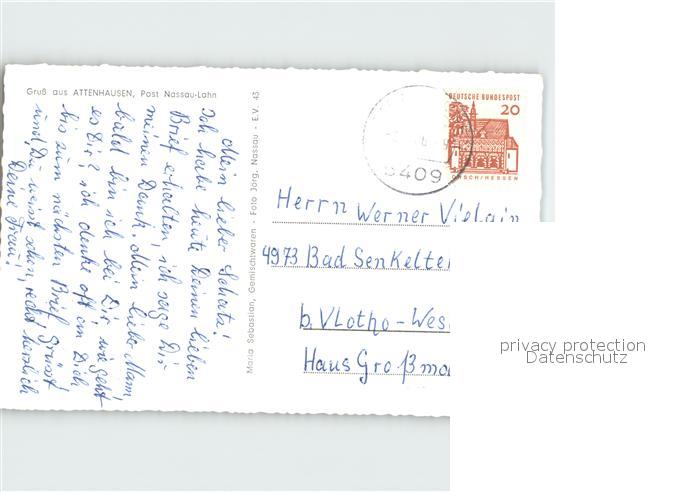 Gruß aus ATTENHAUSEN, Post Nassau-Lahn
Mein lieber Schatz!
Ich habe heute Deinen lieben
Brief erhalten, ich sage Dir
meinen Dank. Mein lieber Mann,
bald bin ich bei Dir, wie geht
es Dir? ich denke oft an Dich
bis zum nächsten Brief grüsst
und, Du weisst schon, recht herzlich
Deine Frau!
Maria Sebastian, Gemischtwaren - Foto Jörg, Nassau - E.V. 43
DEUTSCHE BUNDESPOST
20
LORSCH/HESSEN
5409
Herrn Werner
4973 Bad Senkelte
b. Vlotho-Wes
Haus Großma
privacy protection
Datenschutz